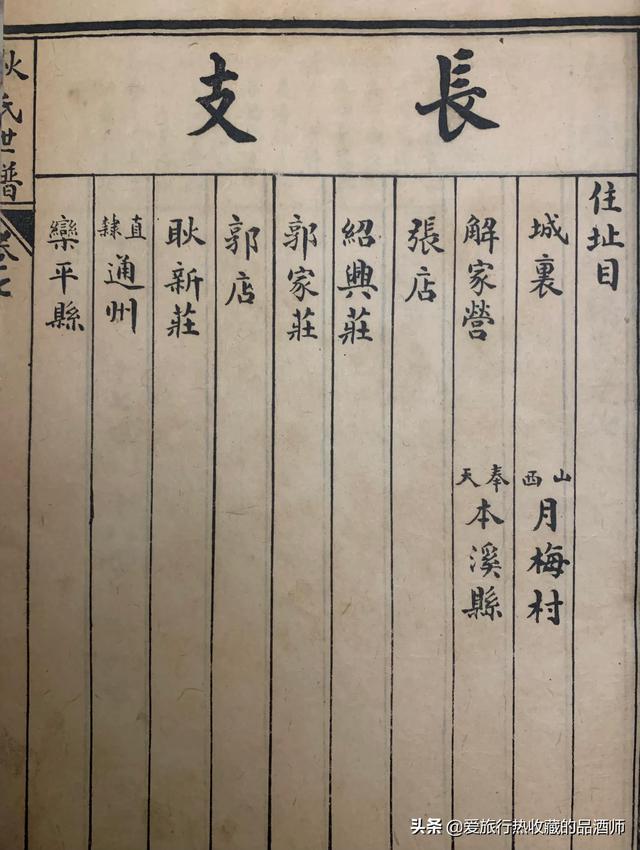 長支
住址目
城裏
山西月梅村
解家營
奉天本溪縣
張店
紹興莊
郭家莊
郭店
耿新莊
直隸通州
欒平縣
氏世譜
頭条 @爱旅行热收藏的品酒师